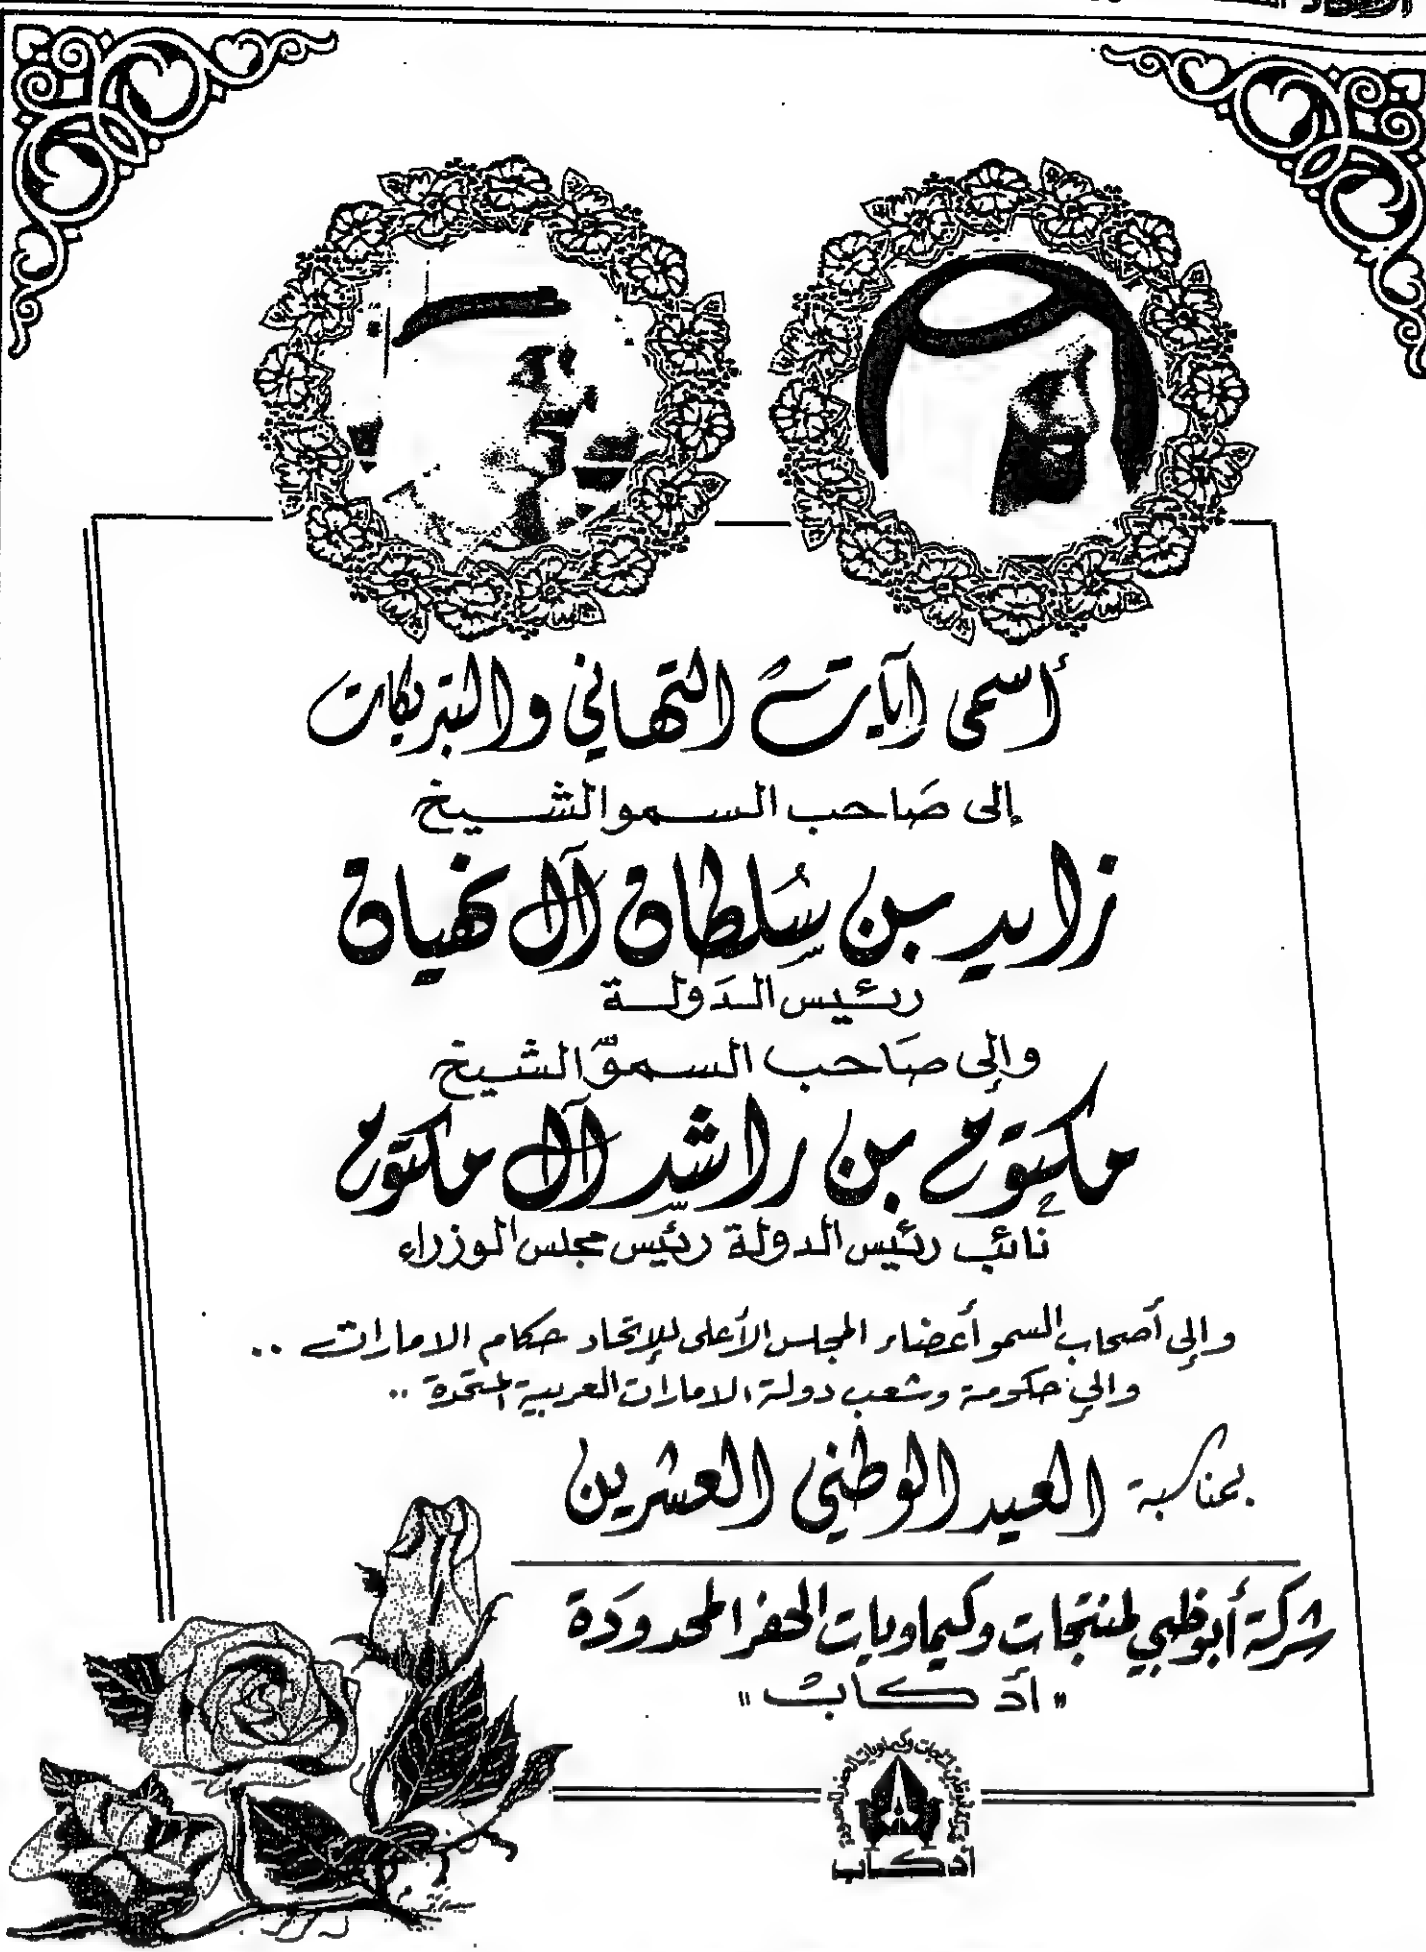 أسمى آيات التهاني والتبريكات
إلى صَاحب السمو الشيخ
زايد بن سُلطان آل نهيان
رئيس الدَولة
وإلى صَاحب السموّ الشيخ
مكتوم بن راشد آل مكتوم
نائب رئيس الدولة رئيس مجلس الوزراء
وإلى أصحاب السمو أعضاء المجلس الأعلى للإتحاد حكام الامارات ..
وإلى حكومة وشعب دولة الامارات العربية المتحدة ..
بمناسبة العيد الوطني العشرين
شركة أبوظبي لمنتجات وكيماويات الحفر المحدودة
" ادكاب "
ادكاب